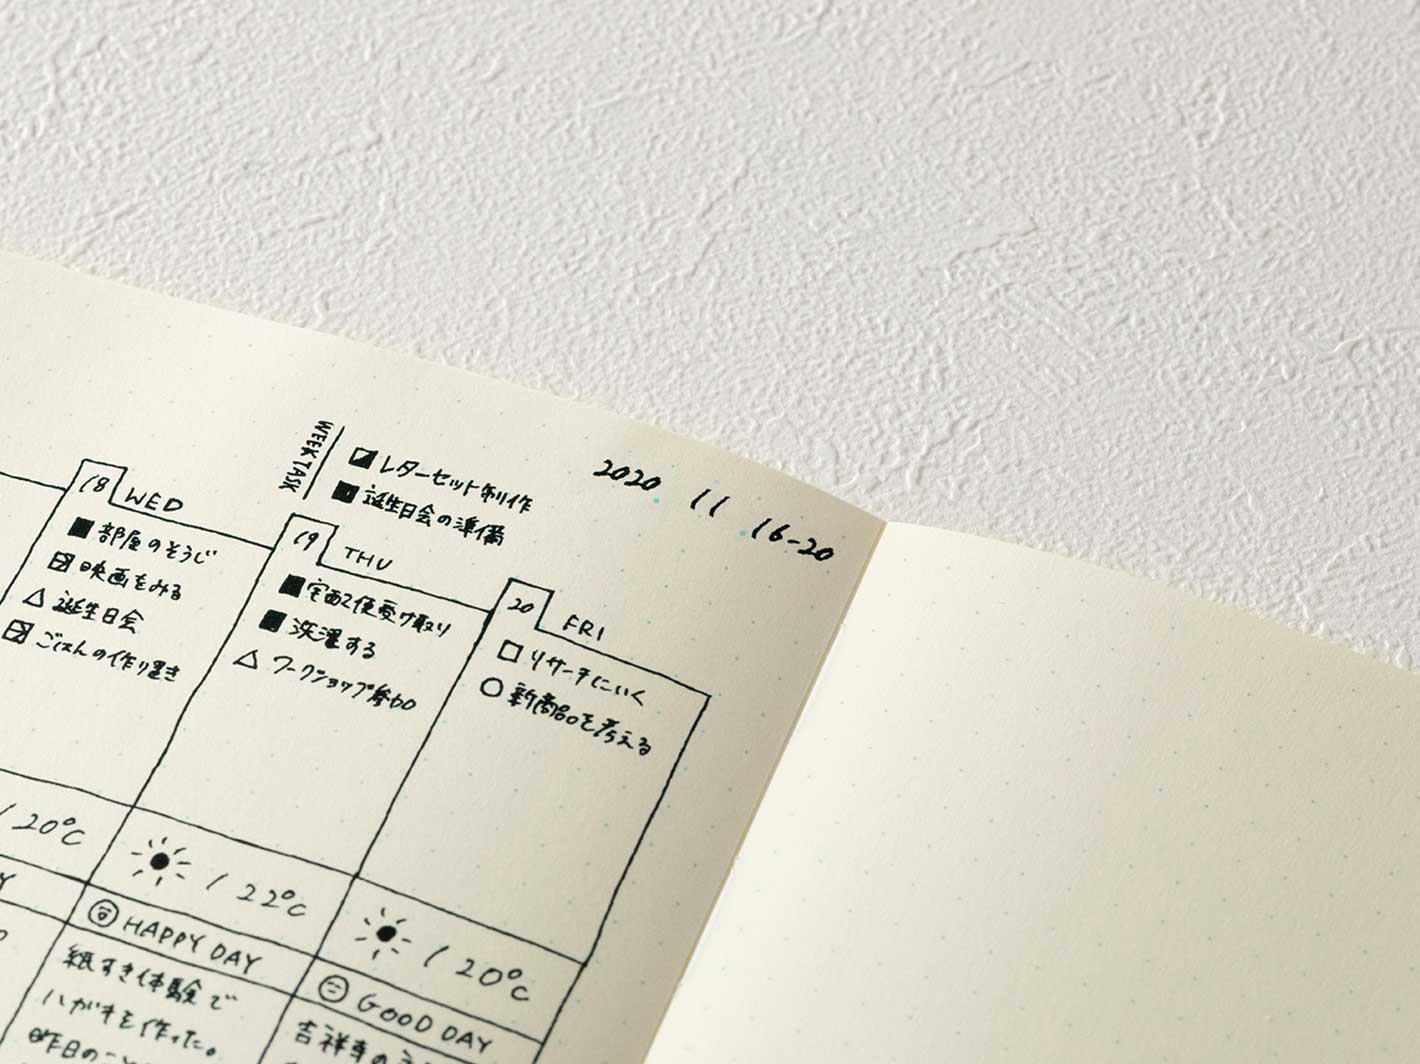 WEEK TASK
レターセット制作
誕生日会の準備
2020. 11 .16-20
18 WED
部屋のそうじ
映画をみる
誕生日会
ごはんの作り置き
19 THU
宅配便受け取り
洗濯する
ワークショップ参加
20 FRI
リサーチにいく
新商品を考える
/ 20℃
/ 22℃
HAPPY DAY
紙すき体験で
ハガキを作った。
昨日のこと
/ 20℃
GOOD DAY
吉祥寺の